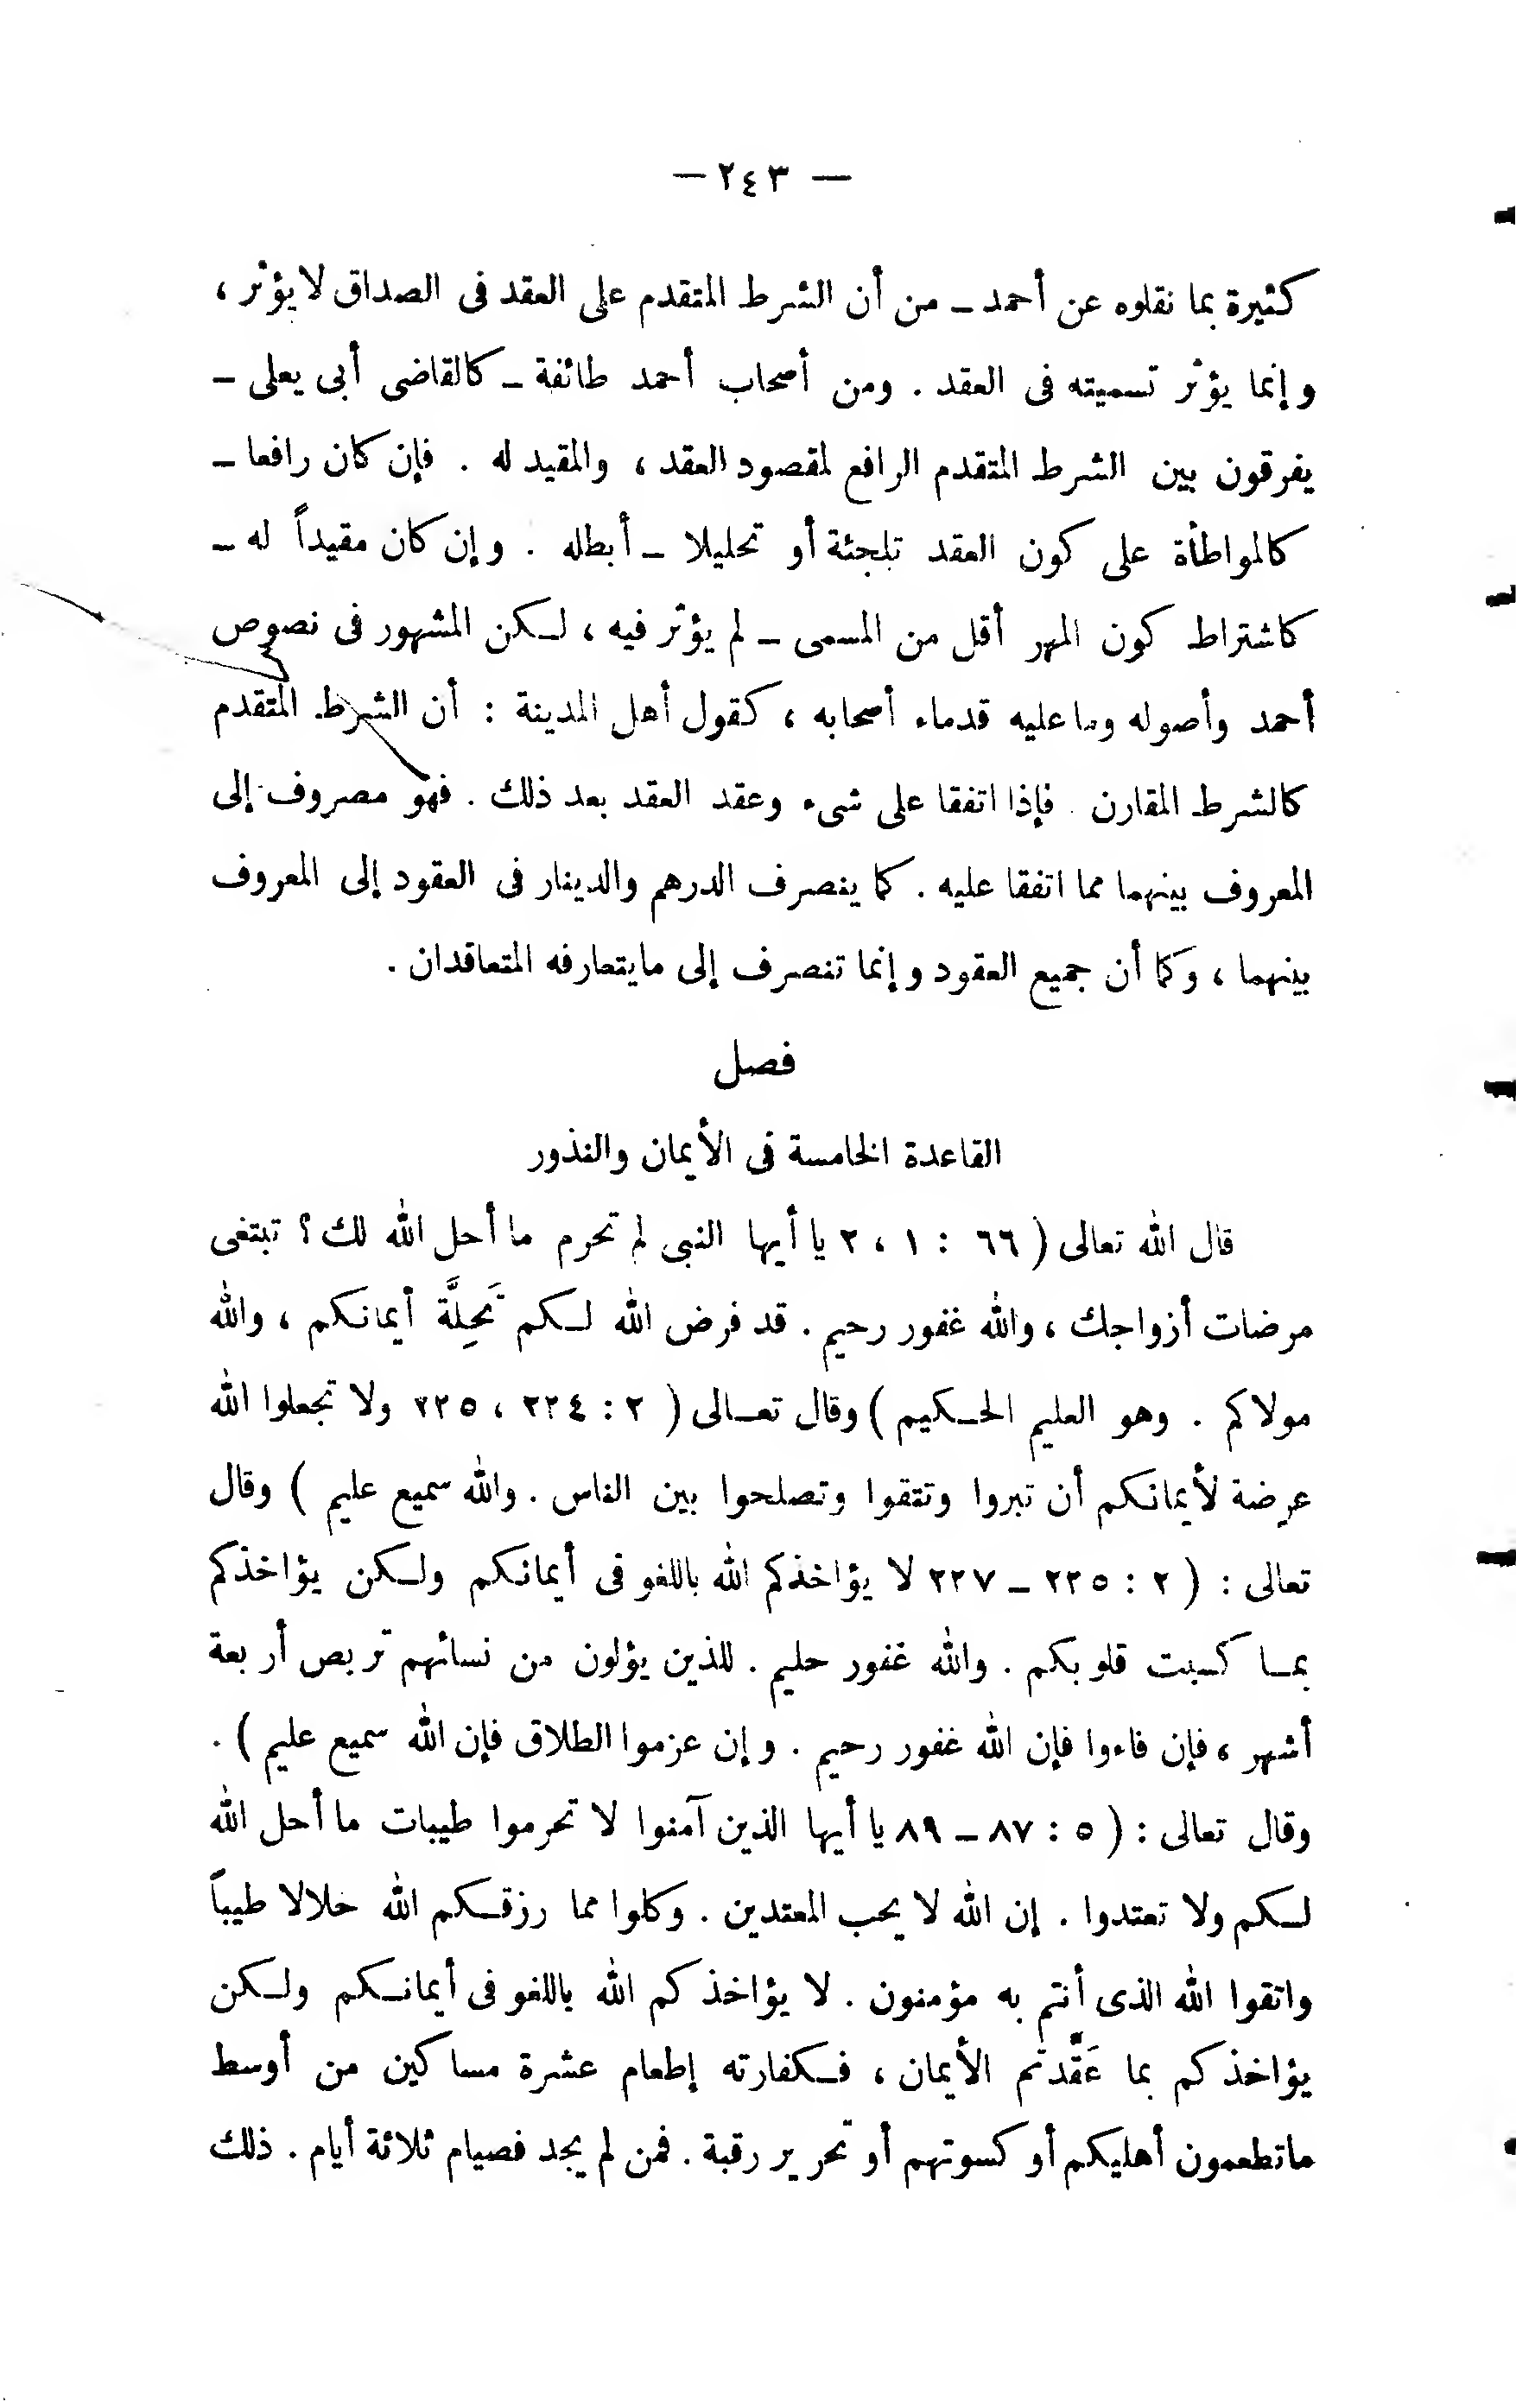 — ٢٤٣ —
كثيرة بما نقلوه عن أحمد ـ من أن الشرط المتقدم على العقد فى الصداق لا يؤثر ،
وإنما يؤثر تسميته فى العقد . ومن أصحاب أحمد طائفة ـ كالقاضى أبى يعلى ـ
يفرقون بين الشرط المتقدم الرافع لمقصود العقد ، والمقيد له . فإن كان رافعا ـ
كالمواطأة على كون العقد تلجئة أو تحليلا ـ أبطله . وإن كان مقيداً له ـ
كاشتراط كون المهر أقل من المسمى ـ لم يؤثر فيه ، لكن المشهور فى نصوص
أحمد وأصوله وما عليه قدماء أصحابه ، كقول أهل المدينة : أن الشرط المتقدم
كالشرط المقارن . فإذا اتفقا على شىء وعقد العقد بعد ذلك . فهو مصروف إلى
المعروف بينهما مما اتفقا عليه . كما ينصرف الدرهم والدينار فى العقود إلى المعروف
بينهما ، وكما أن جميع العقود وإنما تنصرف إلى مايتعارفه المتعاقدان .
فصل
القاعدة الخامسة فى الأيمان والنذور
قال الله تعالى ( ٦٦ : ١ ، ٢ يا أيها النبى لم تحرم ما أحل الله لك ؟ تبتغى
مرضات أزواجك ، والله غفور رحيم . قد فرض الله لكم تَحِلَّة أيمانكم ، والله
مولاكم . وهو العليم الحكيم ) وقال تعالى ( ٢ : ٢٢٤ ، ٢٢٥ ولا تجعلوا الله
عرضة لأيمانكم أن تبروا وتتقوا وتصلحوا بين الناس . والله سميع عليم ) وقال
تعالى : ( ٢ : ٢٢٥ ـ ٢٢٧ لا يؤاخذكم الله باللغو فى أيمانكم ولكن يؤاخذكم
بما كسبت قلوبكم . والله غفور حليم . للذين يؤلون من نسائهم تربص أربعة
أشهر ، فإن فاءوا فإن الله غفور رحيم . وإن عزموا الطلاق فإن الله سميع عليم ) .
وقال تعالى : ( ٥ : ٨٧ ـ ٨٩ يا أيها الذين آمنوا لا تحرموا طيبات ما أحل الله
لكم ولا تعتدوا . إن الله لا يحب المعتدين . وكلوا مما رزقكم الله حلالا طيباً
واتقوا الله الذى أنتم به مؤمنون . لا يؤاخذكم الله باللغو فى أيمانكم ولكن
يؤاخذكم بما عَقَّدتم الأيمان ، فكفارته إطعام عشرة مساكين من أوسط
ماتطعمون أهليكم أو كسوتهم أو تحرير رقبة . فمن لم يجد فصيام ثلاثة أيام . ذلك